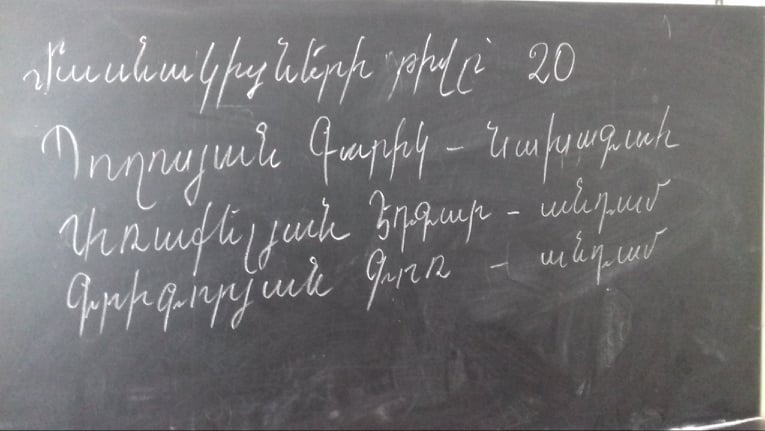 Մասնակիցների թիվը՝ 20
Պողոսյան Գարիկ – նախագահ
Առաքելյան Էդգար – անդամ
Գրիգորյան Գոռ – անդամ